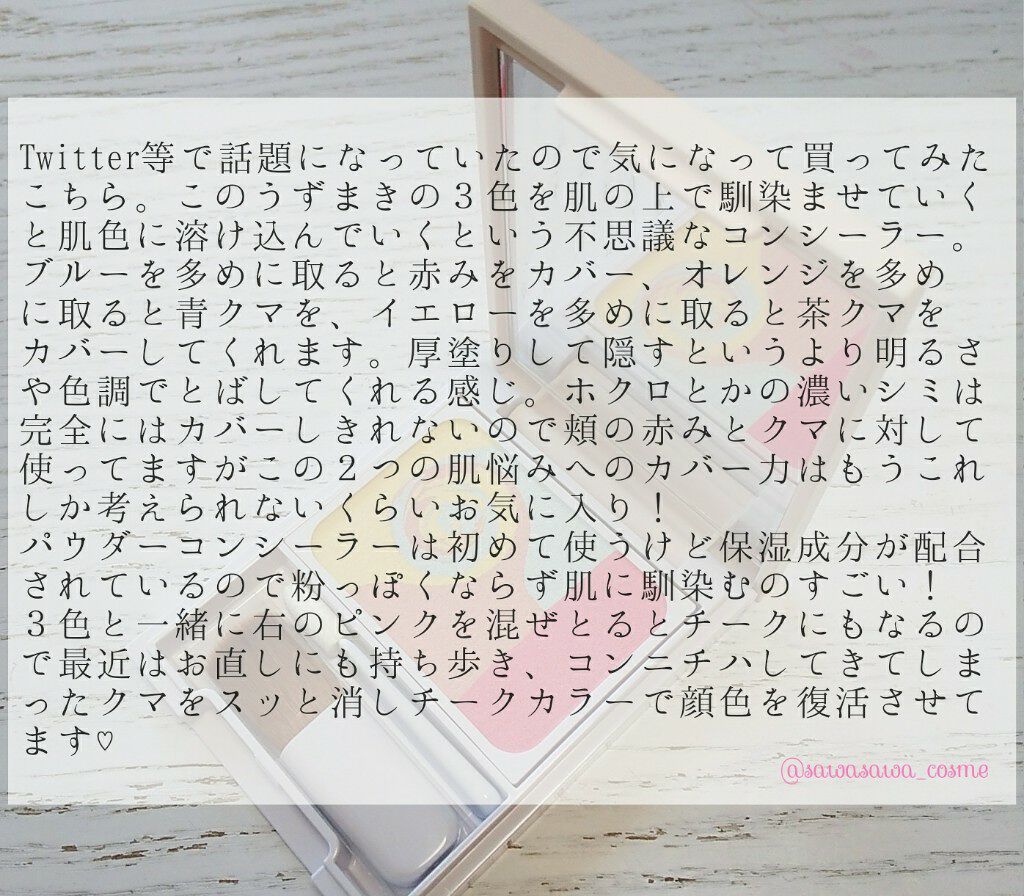 Twitter等で話題になっていたので気になって買ってみた
こちら。このうずまきの３色を肌の上で馴染ませていく
と肌色に溶け込んでいくという不思議なコンシーラー。
ブルーを多めに取ると赤みをカバー、オレンジを多め
に取ると青クマを、イエローを多めに取ると茶クマを
カバーしてくれます。厚塗りして隠すというより明るさ
や色調でとばしてくれる感じ。ホクロとかの濃いシミは
完全にはカバーしきれないので頬の赤みとクマに対して
使ってますがこの２つの肌悩みへのカバー力はもうこれ
しか考えられないくらいお気に入り！
パウダーコンシーラーは初めて使うけど保湿成分が配合
されているので粉っぽくならず肌に馴染むのすごい！
３色と一緒に右のピンクを混ぜとるとチークにもなるの
で最近はお直しにも持ち歩き、コンニチハしてきてしま
ったクマをスッと消しチークカラーで顔色を復活させて
ます♡
@sawasawa_cosme